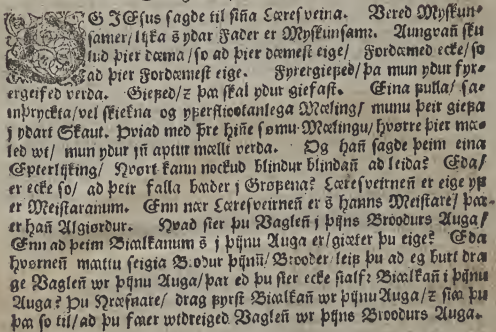 OG JEsus sagde til sijña Læresveina. Vered Myskun-
samer/ lijka s̃ ydar Fader er Myskunsamr. Aungvañ sku
lud þier dæma/ so ad þier dæmest eige/ Fordæmed ecke/ so
ad þier Fordæmest eige. Fyrergiefed/ þa mun ydur fyr-
ergeifed verda. Giefed/ z þa skal ydur giefast. Eina fulla/ sa-
inþryckta/ vel skiekna og yferfliootanlega Mæling/ munu þeir giefa
i ydart Skaut. Þviad med þre hiñe sømu Mælingu/ hvørre þier mæ-
led wt/ mun ydur jñ aptur mælli verda. Og hañ sagde þeim eina
Epterlijking/ Hvort kann nockud blindur blindañ ad leida? Eda/
er ecke so/ ad þeir falla bæder j Grofena? Læresveirneñ er eige yf
er Meistaranum. Enn nær Læresveirneñ er s̃ hanns Meistare/ þa-
er hañ Algiørdur. Hvad sier þu Vagleñ j þijns Broodurs Auga/
Enn ad þeim Biælkanum s̃ j þijnu Auga er/ giæter þu eige? Eda
hvørneñ mættu seigia B.odur þijnũ/ Brooder/ leif þu ad eg burt dra
ge Vagleñ wr þijnu Auga/ þar ed þu sier ecke sialfr Biælkañ i þijnu
Auga? Þu Hræsnare/ drag fyrst Biælkañ wr þijnu Auga/ z siæ þu
þar so til/ ad þu fæer wtdreiged Vagleñ wr þijns Broodurs Auga.